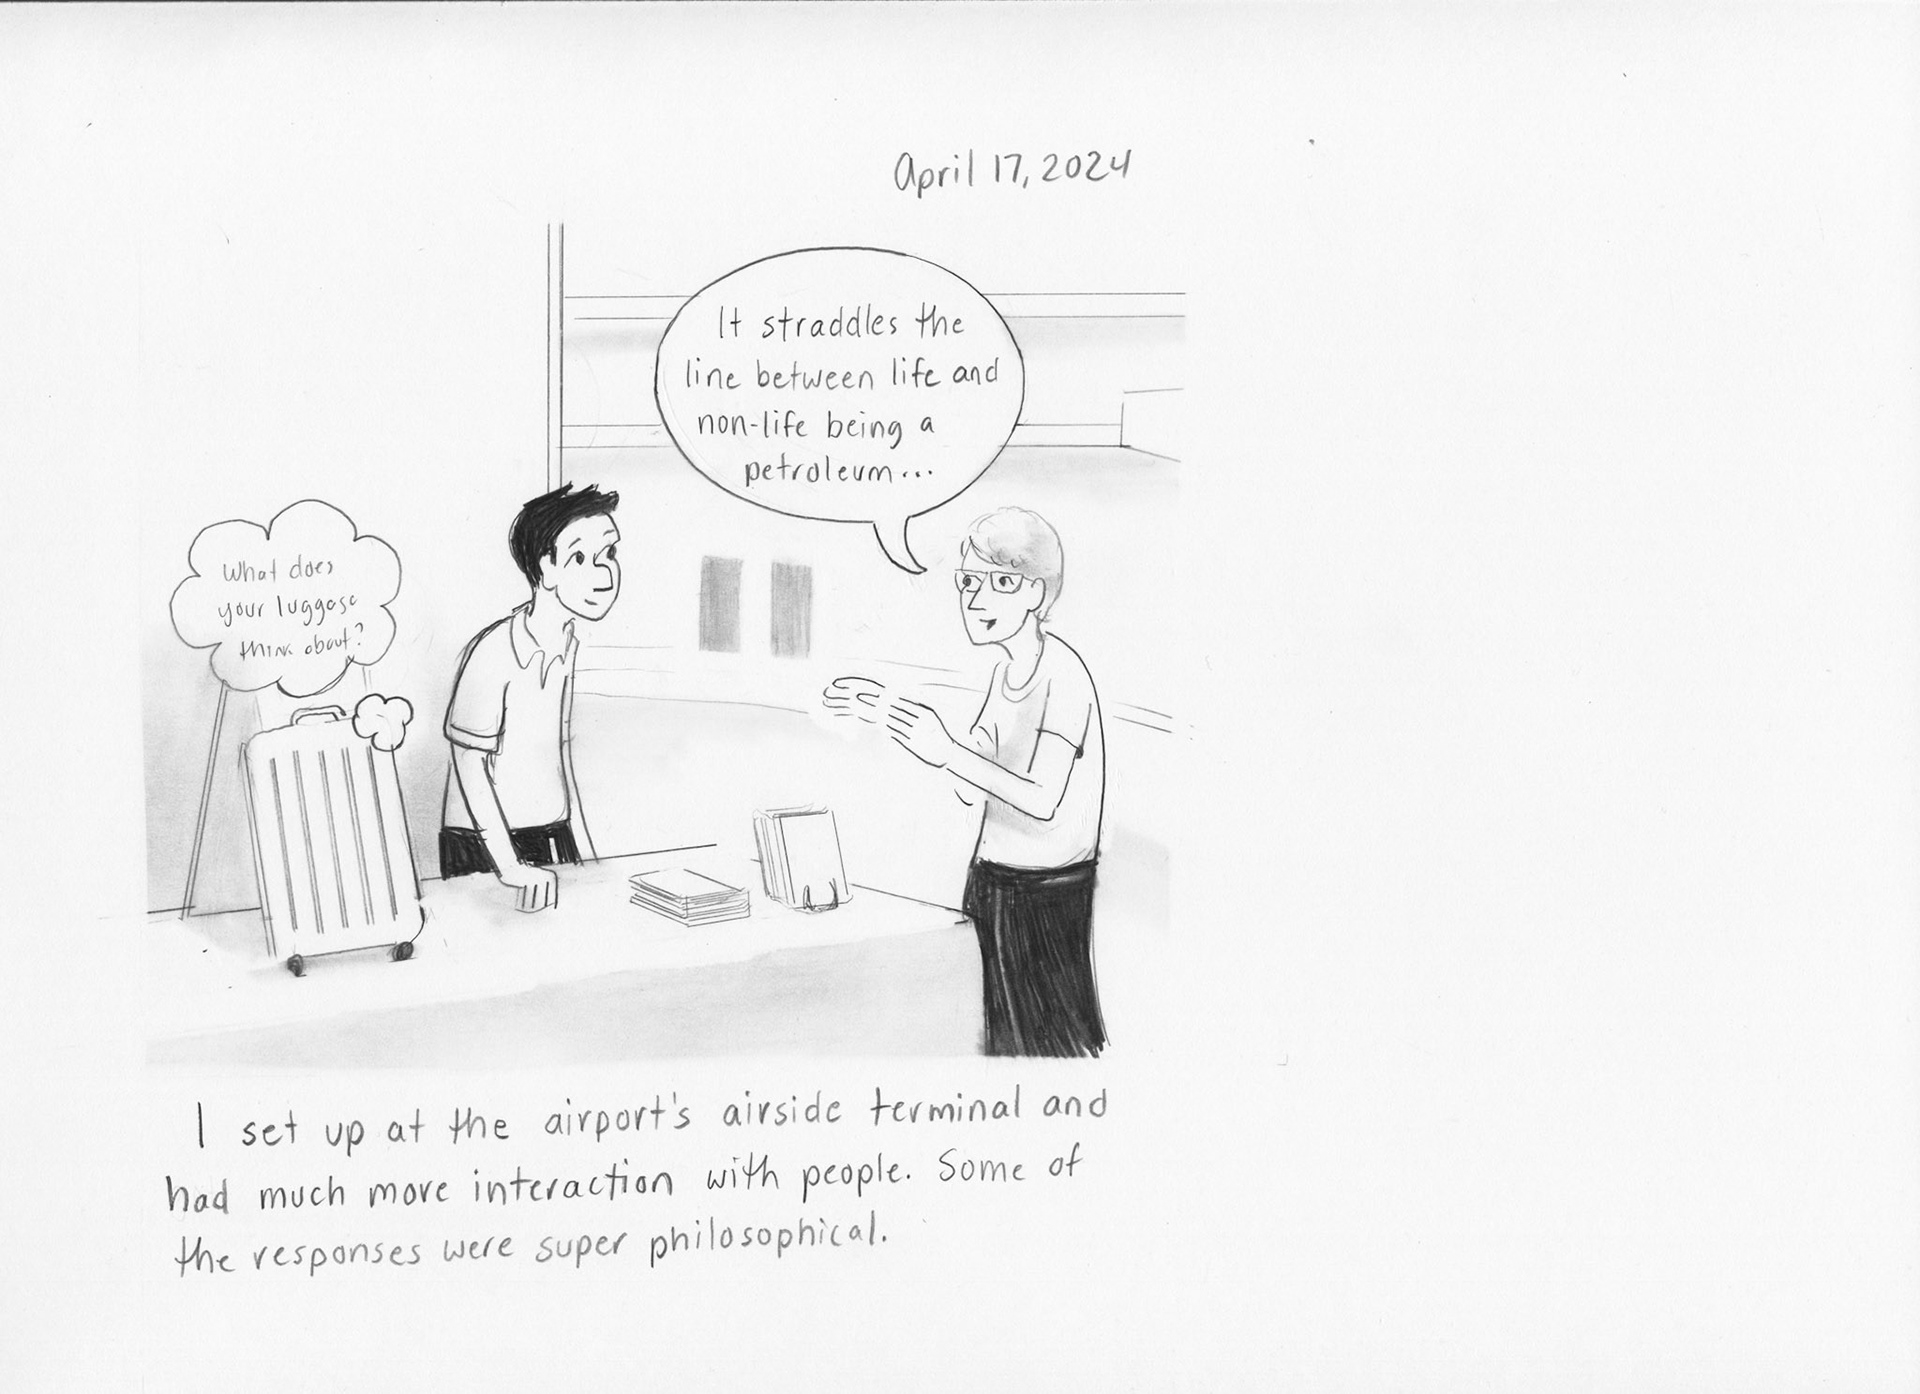 April 17, 2024
It straddles the
line between life and
non-life being a
petroleum...
What does
your luggage
think about?
I set up at the airport's airside terminal and
had much more interaction with people. Some of
the responses were super philosophical.